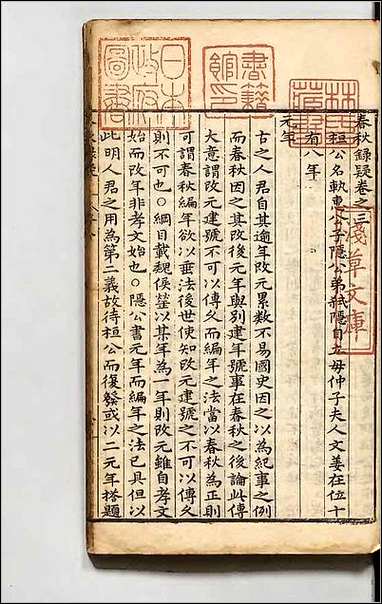 春秋錄疑卷之三
桓公名軌惠公子隱公弟弒隱自立母仲子夫人文姜在位十
有八年
元年
古之人君自其逾年改元累數不易國史因之以為紀事之例
而春秋因之其改後元年與別建年號事在春秋之後論此傳
大意謂改元建號不可以傳久而編年之法當以春秋為正則
可謂春秋編年欲以垂法後世使知改元建號之不可以傳久
則不可也○綱目載魏侯罃以某年為一年則改元雖自孝文
始而改年非孝文始也○隱公書元年而編年之法已具但以
此明人君之用為第二義故待桓公而復發或以二元年搭題
日本
政府
圖書
書籍
館印
淺草文庫
林氏
藏書